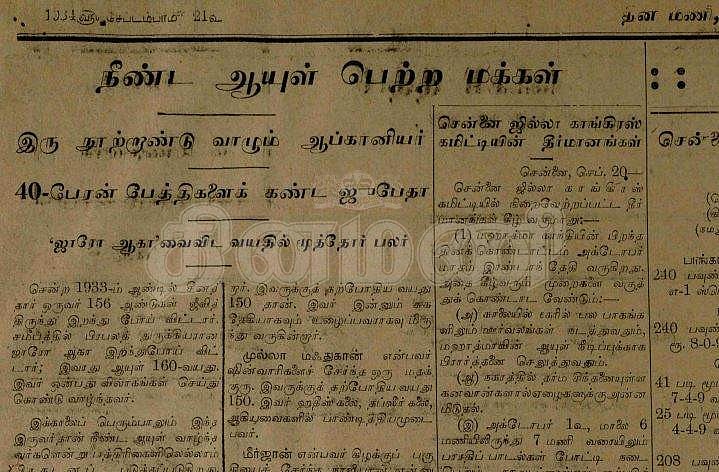 1934ளு செப்டம்பர்மீ 21உ
தின மணி,
நீண்ட ஆயுள் பெற்ற மக்கள்
இரு நூற்றாண்டு வாழும் ஆப்கானியர்
40-பேரன் பேத்திகளைக் கண்ட ஜுபேதா
'ஜாரோ ஆகா'வைவிட வயதில் மூத்தோர் பலர்
சென்ற 1933-ம் ஆண்டில் சீனத்
தார் ஒருவர் 156 ஆண்டுகள் ஜீவித்
திருந்து இறந்து போய் விட்டார்.
சமீபத்தில் பிரபலத் துருக்கியரான
ஜாரோ ஆகா இறந்துபோய் விட்
டார்; இவரது ஆயுள் 160-வயது.
இவர் ஒன்பது விவாகங்கள் செய்து
கொண்டு வாழ்ந்தவர்.
இக்காலைப் பெரும்பாலும் இந்த
இருவர்தான் நீண்ட ஆயுள் வாழ்ந்த
வர்களென்று பத்திரிகைகளிலெல்லாம்
றார். இவருக்குத் தற்போதிய வயது
150 தான். இவர் இன்னும் சுக
தேகியாகவும் உழைப்பவராகவு மிரு
ந்து வருகின்றார்.
முல்லா மஃதுகான் என்பவர்
ஷின்வாரிகளைச் சேர்ந்த ஒரு மதக்
குரு. இவருக்குத் தற்போதிய வயது
150. இவர் ஹதீஸ்கலை, தப்ஸீர் கலை,
ஆகியவைகளில் பாண்டித்தியமுடைய
வர்.
மீர்ஜான் என்பவர் கிழக்குப் புரு
சென்னை ஜில்லா காங்கிரஸ்
கமிட்டியின் தீர்மானங்கள்
சென்னை, செப். 20—
சென்னை ஜில்லா காங்கிரஸ்
கமிட்டியில் நிறைவேற்றப்பட்ட தீர்
மானங்கள் கீழ் வருமாறு:—
(1) மஹாத்மா காந்தியின் பிறந்த
தினக் கொண்டாட்டம் அக்டோபர்
மாதம் இரண்டாந் தேதி வருகிறது.
அதை கீழ்வரும் முறைகளை வகுத்
துக் கொண்டாட வேண்டும்:—
(அ) காலையில் நகரில் பல பாகங்க
ளிலும் ஊர்வலங்கள் நடத்துவதும்,
மஹாத்மாவின் ஆயுள் நீடிப்புக்காக
பிரார்த்தனை செலுத்துவதும்.
(ஆ) நகரத்தில் தர்ம சிந்தனையுள்ள
கனவான்களால் ஏழைகளுக்கு அன்ன
மிடுதல்.
(இ) அக்டோபர் 1உ, மாலை 6
மணியிலிருந்து 7 மணி வரையிலும்
பாரதிப் பாடல்கள் போட்டி நடை
சென்
240 பவு
240 பவு
ரூ. 8-0-
41 படி மூ
7-4-9
25 படி மூ
4-4-9
208 பவு
தினமணி